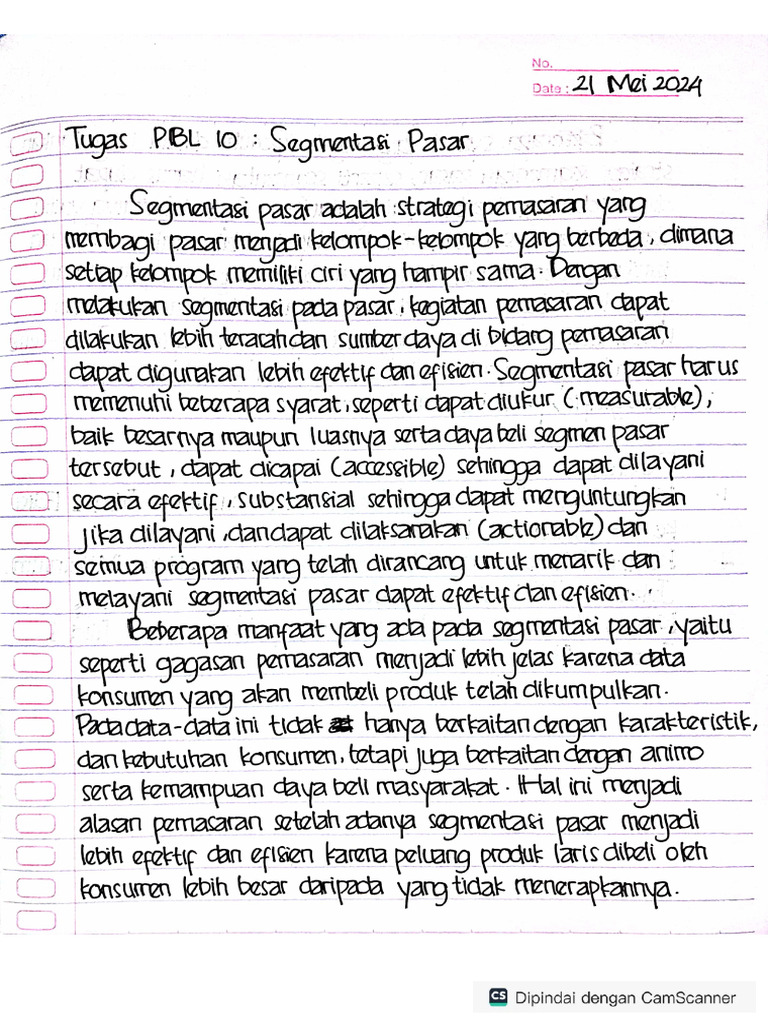 No.
Date : 21 Mei 2024
Tugas PBL 10 : Segmentasi Pasar
Segmentasi pasar adalah strategi pemasaran yang
membagi pasar menjadi kelompok-kelompok yang berbeda, dimana
setiap kelompok memiliki ciri yang hampir sama. Dengan
melakukan segmentasi pada pasar, kegiatan pemasaran dapat
dilakukan lebih terarah dan sumber daya di bidang pemasaran
dapat digunakan lebih efektif dan efisien. Segmentasi pasar harus
memenuhi beberapa syarat, seperti dapat diukur (measurable),
baik besarnya maupun luasnya serta daya beli segmen pasar
tersebut, dapat dicapai (accessible) sehingga dapat dilayani
secara efektif, substansial sehingga dapat menguntungkan
jika dilayani, dan dapat dilaksanakan (actionable) dan
semua program yang telah dirancang untuk menarik dan
melayani segmentasi pasar dapat efektif dan efisien.
Beberapa manfaat yang ada pada segmentasi pasar, yaitu
seperti gagasan pemasaran menjadi lebih jelas karena data
konsumen yang akan membeli produk telah dikumpulkan.
Pada data-data ini tidak hanya berkaitan dengan karakteristik,
dan kebutuhan konsumen, tetapi juga berkaitan dengan animo
serta kemampuan daya beli masyarakat. Hal ini menjadi
alasan pemasaran setelah adanya segmentasi pasar menjadi
lebih efektif dan efisien karena peluang produk laris dibeli oleh
konsumen lebih besar daripada yang tidak menerapkannya.
CS Dipindai dengan CamScanner